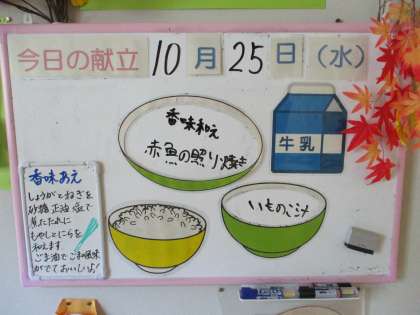 今日の献立 10月25日(水)
香味和え
赤魚の照り焼き
牛乳
いものこ汁
香味あえ
しょうがとねぎを
砂糖、正油、塩で
煮たたれに
もやしとにらを
和えます
ごま油でごま風味
がでておいしいよ!